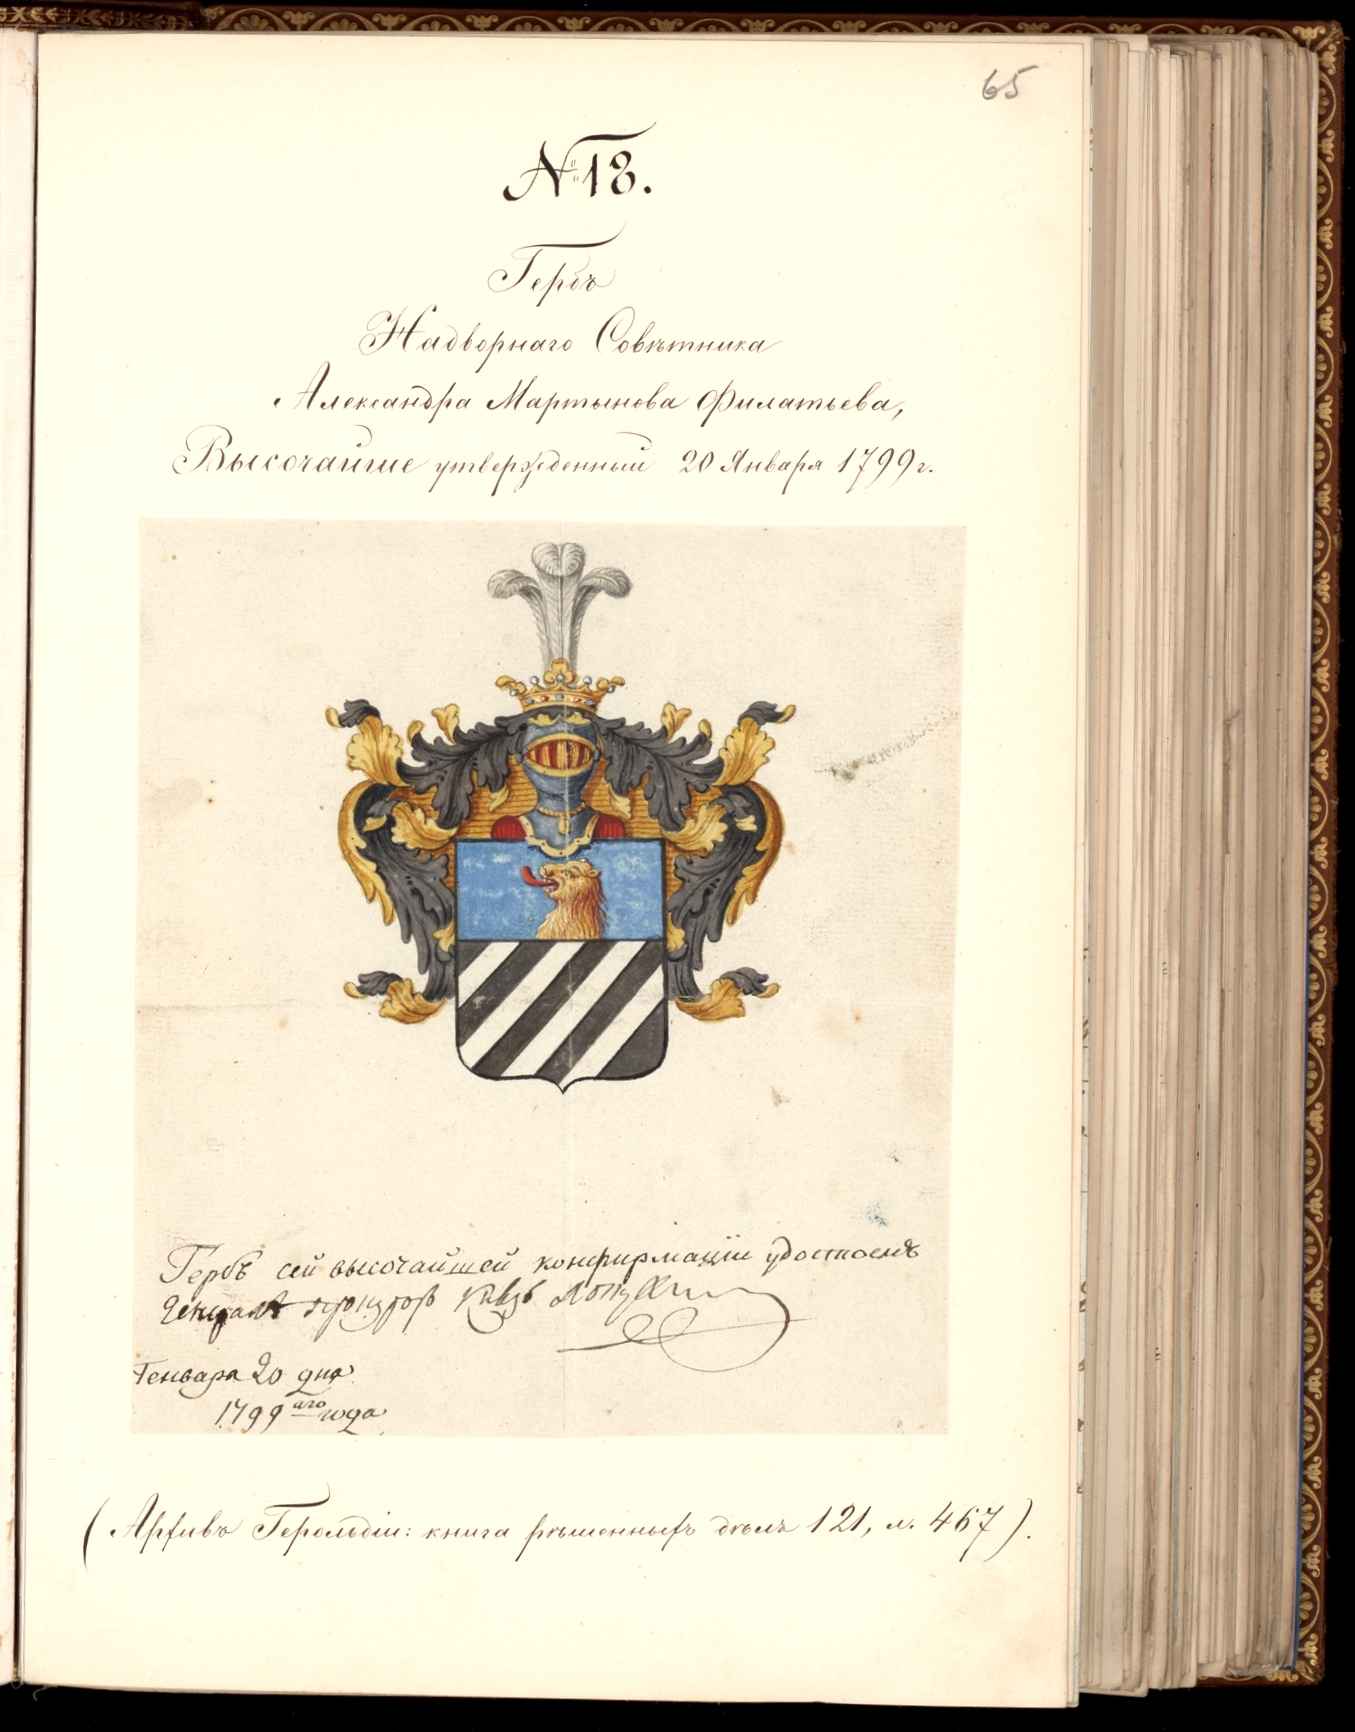 65
№ 18.
Гербъ
Надворнаго Совѣтника
Александра Мартынова Филатьева,
Высочайше утвержденный 20 Января 1799 г.
Гербъ сей высочайшей конфирмации удостоенъ
Генералъ прокуроръ Князь Лопухин
Генваря 20 дня
1799 аго года
(Архивъ Герольдіи: книга рѣшенныхъ дѣлъ 121, л. 467).